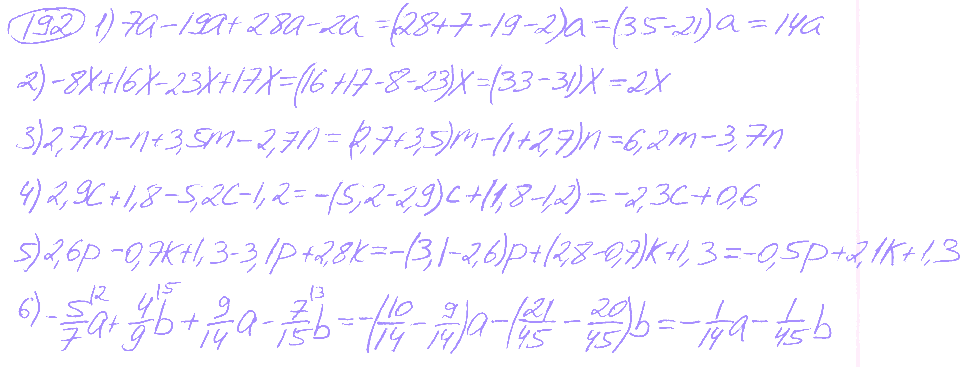 192 1) 7a-19a+28a-2a=(28+7-19-2)a=(35-21)a=14a
2) -8x+16x-23x+17x=(16+17-8-23)x=(33-31)x=2x
3) 2,7m-n+3,5m-2,7n=(2,7+3,5)m-(1+2,7)n=6,2m-3,7n
4) 2,9c+1,8-5,2c-1,2=-(5,2-2,9)c+(1,8-1,2)=-2,3c+0,6
5) 2,6p-0,7k+1,3-3,1p+2,8k=-(3,1-2,6)p+(2,8-0,7)k+1,3=-0,5p+2,1k+1,3
6) -5/7^{\2}a+4/9^{\5}b+9/14a-7/15^{\3}b=-(10/14-9/14)a-(21/45-20/45)b=-1/14a-1/45b